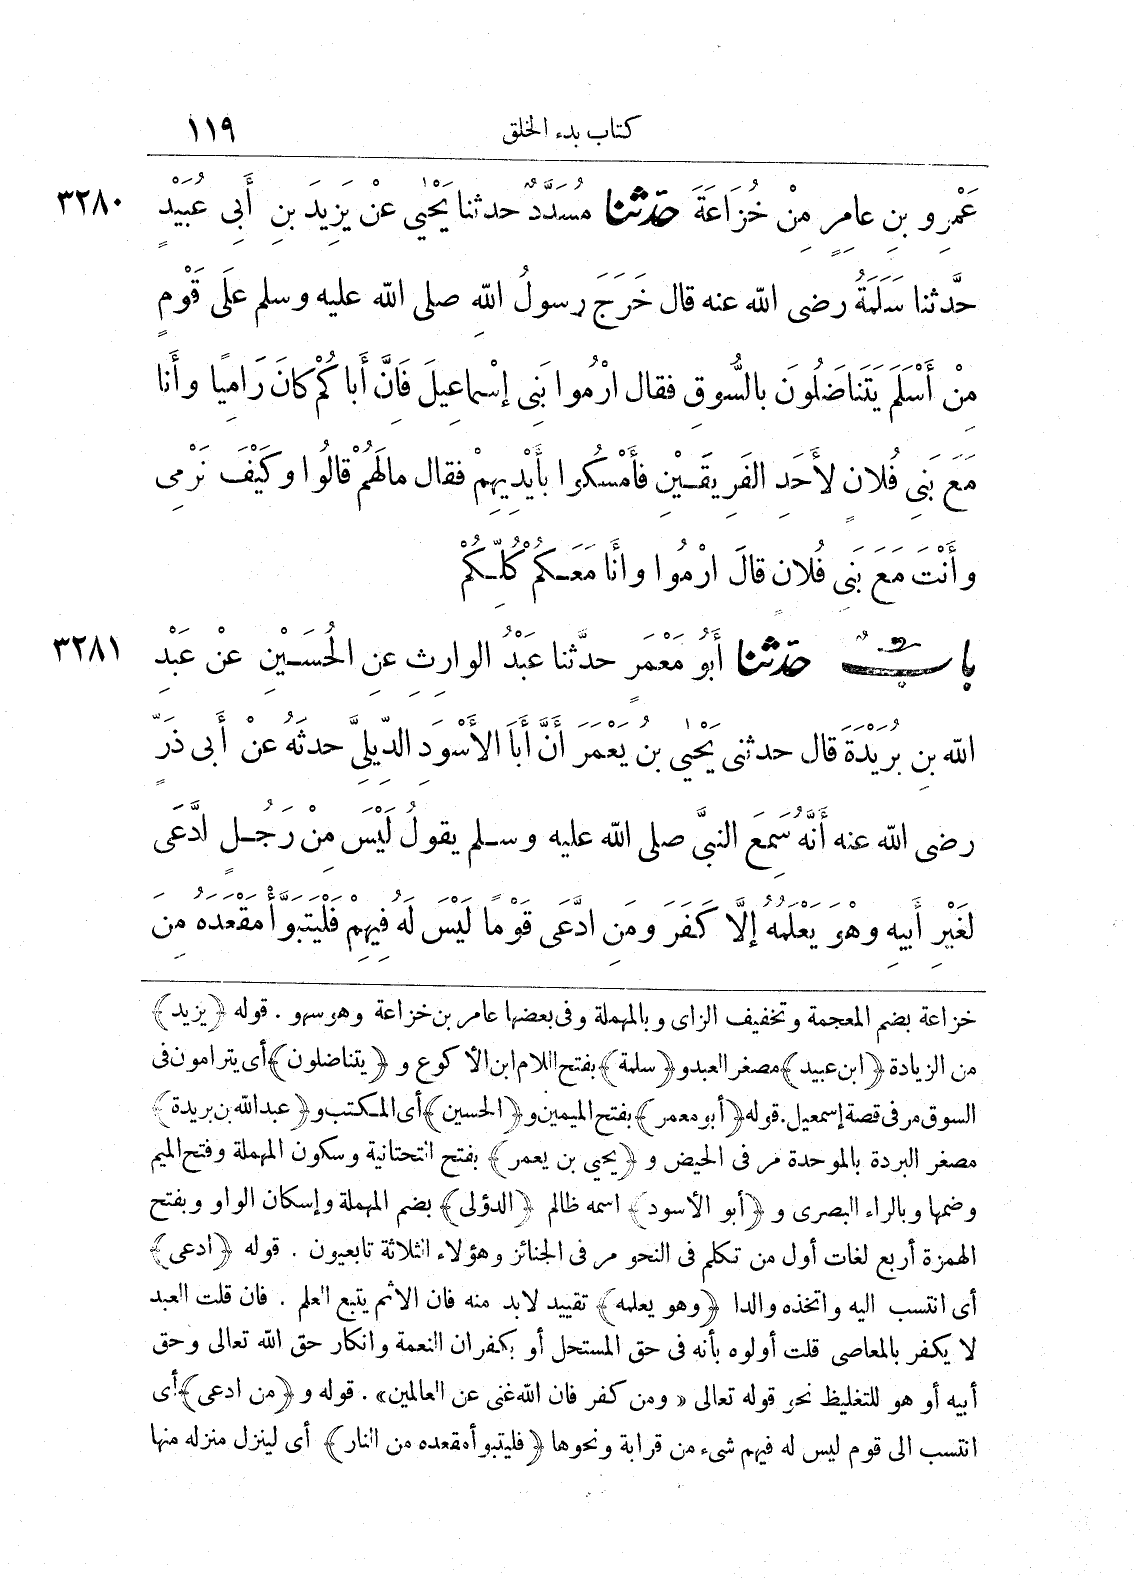 كتاب بدء الخلق ١١٩
عَمْرِو بنِ عامِرٍ مِنْ خُزَاعَةَ حدّثنا مُسَدَّدٌ حدثنا يَحْيٰي عَنْ يَزِيدَ بنِ أَبِي عُبَيْدٍ ٣٢٨٠
حدَّثنا سَلَمَةُ رضى اللّه عنه قال خَرَجَ رسولُ اللّهِ صلى اللّه عليه وسلم علَى قَوْمٍ
مِنْ أَسْلَمَ يَتَناضَلُونَ بالسُّوقِ فقال ارْمُوا بَنِى إسْماعِيلَ فَانَّ أَباكُمْ كانَ رَامِيًا وأَنا
مَعَ بَنِى فُلانٍ لأَحَدِ الفَرِيقَيْنِ فأَمْسَكُوا بأَيْدِيهِمْ فقال مالَهُمْ قالُوا وكَيْفَ نَرْمِى
وأَنْتَ مَعَ بَنِى فُلانٍ قالَ ارْمُوا وأَنَا مَعَكُمْ كُلِّكُمْ
بابٌ حدّثنا أَبُو مَعْمَرٍ حدَّثنا عَبْدُ الوارِثِ عنِ الحُسَيْنِ عَنْ عَبْدِ ٣٢٨١
اللّه بنِ بُرَيْدَةَ قال حدثنى يَحْيٰي بنُ يَعْمَرَ أَنَّ أَبَا الأَسْوَدِ الدِّيلِىَّ حدثَهُ عَنْ أَبى ذَرٍّ
رضى اللّه عنه أَنَّهُ سَمِعَ النبىَّ صلى اللّه عليه وسلم يقولُ لَيْسَ مِنْ رَجُلٍ ادَّعَى
لغَيْرِ أَبيهِ وهْوَ يَعْلَمُهُ إلَّا كَفَرَ ومَنِ ادَّعَى قَوْمًا لَيْسَ لَهُ فِيهِمْ فَلْيَتَبَوَّأْ مَقْعَدَهُ مِنَ
خزاعة بضم المعجمة وتخفيف الزاى وبالمهملة وفى بعضها عامر بن خزاعة وهو سهو . قوله ﴿يزيد﴾
من الزيادة ﴿ابن عبيد﴾ مصغر العبد و﴿سلمة﴾ بفتح اللام ابن الأكوع و ﴿يتناضلون﴾ أى يترامون فى
السوق مر فى قصة إسمعيل. قوله ﴿أبو معمر﴾ بفتح الميمين و﴿الحسين﴾ أى المكتب و﴿عبد اللّه بن بريدة﴾
مصغر البردة بالموحدة مر فى الحيض و ﴿يحيي بن يعمر﴾ بفتح التحتانية وسكون المهملة وفتح الميم
وضمها وبالراء البصرى و ﴿أبو الأسود﴾ اسمه ظالم ﴿الدؤلى﴾ بضم المهملة وإسكان الواو وبفتح
الهمزة أربع لغات أول من تكلم فى النحو مر فى الجنائز وهؤلاء الثلاثة تابعيون . قوله ﴿ادعى﴾
أى انتسب اليه واتخذه والدا ﴿وهو يعلمه﴾ تقييد لابد منه فان الاثم يتبع العلم . فان قلت العبد
لا يكفر بالمعاصى قلت أولوه بأنه فى حق المستحل أو بكفران النعمة وانكار حق اللّه تعالى وحق
أبيه أو هو للتغليظ نحو قوله تعالى « ومن كفر فان اللّه غنى عن العالمين» . قوله و ﴿من ادعى﴾ أى
انتسب الى قوم ليس له فيهم شىء من قرابة ونحوها ﴿فليتبوأ مقعده من النار﴾ أى لينزل منزله منها